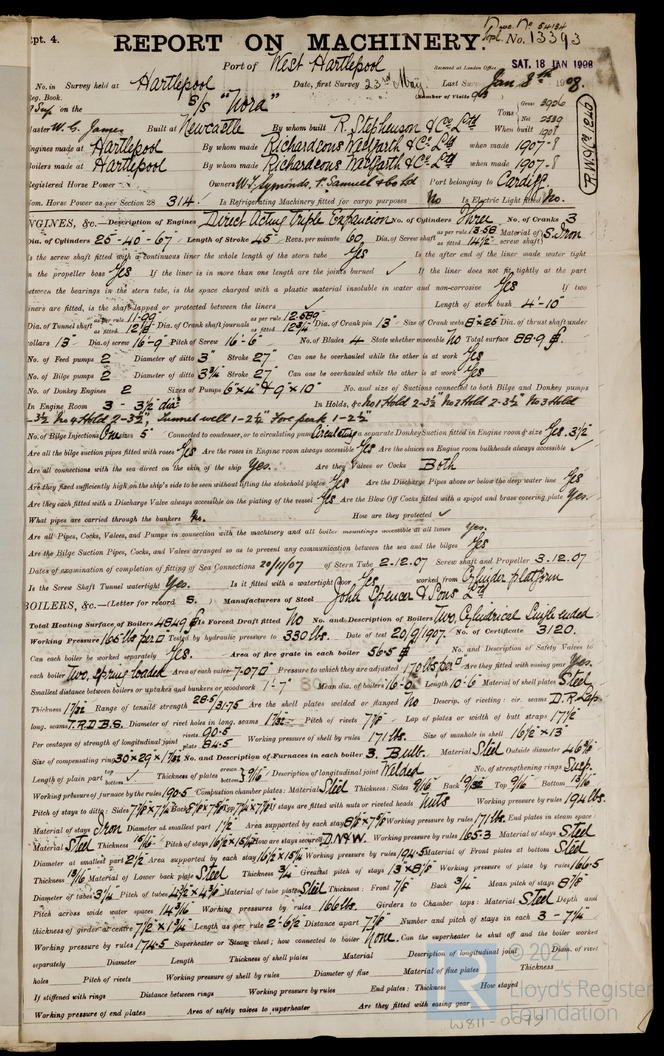 Rpt. 4.
REPORT ON MACHINERY.
No. 13393
Port of West Hartlepool
Received at London Office SAT. 18 JAN 1908
No. in Survey held at Hartlepool Date, first Survey 23rd May Last Survey Jan 8th 1908
Reg. Book. (Number of Visits
on the S/S "Nora" Tons Gross 3906 Net 2539
Master W. C. James Built at Newcastle By whom built R. Stephenson & Co Ltd When built 1908
Engines made at Hartlepool By whom made Richardsons Westgarth & Co Ltd when made 1907-8
Boilers made at Hartlepool By whom made Richardsons Westgarth & Co Ltd when made 1907-8
Registered Horse Power Owners W. J. Symonds, T. Samuel & Co Ltd Port belonging to Cardiff
Nom. Horse Power as per Section 28 314 Is Refrigerating Machinery fitted for cargo purposes No Is Electric Light fitted No.
ENGINES, &c.—Description of Engines Direct Acting Triple Expansion No. of Cylinders Three No. of Cranks 3
Dia. of Cylinders 25-40-67 Length of Stroke 45 Revs. per minute 60 Dia. of Screw shaft as per rule 13.58 as fitted 14½ Material of screw shaft S. Iron
Is the screw shaft fitted with a continuous liner the whole length of the stern tube Yes Is the after end of the liner made water tight
in the propeller boss Yes If the liner is in more than one length are the joints burned ✓ If the liner does not fit tightly at the part
between the bearings in the stern tube, is the space charged with a plastic material insoluble in water and non-corrosive Yes If two
liners are fitted, is the shaft lapped or protected between the liners ✓ Length of stern bush 4'-10"
Dia. of Tunnel shaft as per rule 11.99 as fitted 12⅛ Dia. of Crank shaft journals as per rule 12.589 as fitted 12¾ Dia. of Crank pin 13" Size of Crank webs 8×25 Dia. of thrust shaft under
collars 13" Dia. of screw 16'-9 Pitch of Screw 16'-6" No. of Blades 4 State whether moveable No Total surface 88.9
No. of Feed pumps 2 Diameter of ditto 3" Stroke 27" Can one be overhauled while the other is at work Yes
No. of Bilge pumps 2 Diameter of ditto 3¾ Stroke 27" Can one be overhauled while the other is at work Yes
No. of Donkey Engines 2 Sizes of Pumps 6"×4" & 9"×10" No. and size of Suctions connected to both Bilge and Donkey pumps
In Engine Room 3 - 3½ dia: In Holds, &c. No1 Hold 2-3½" No2 Hold 2-3½" No3 Hold
-3½ No4 Hold 2-3½", Tunnel well 1-2½" Fore peak 1-2½"
No. of Bilge Injections One sizes 5" Connected to condenser, or to circulating pump Circulating a separate Donkey Suction fitted in Engine room & size Yes. 3½
Are all the bilge suction pipes fitted with roses Yes Are the roses in Engine room always accessible Yes Are the sluices on Engine room bulkheads always accessible ✓
Are all connections with the sea direct on the skin of the ship Yes. Are they Valves or Cocks Both
Are they fixed sufficiently high on the ship's side to be seen without lifting the stokehold plates Yes Are the Discharge Pipes above or below the deep water line Yes
Are they each fitted with a Discharge Valve always accessible on the plating of the vessel Yes Are the Blow Off Cocks fitted with a spigot and brass covering plate Yes.
What pipes are carried through the bunkers How are they protected ✓
Are all Pipes, Cocks, Valves, and Pumps in connection with the machinery and all boiler mountings accessible at all times Yes.
Are the Bilge Suction Pipes, Cocks, and Valves arranged so as to prevent any communication between the sea and the bilges Yes
Dates of examination of completion of fitting of Sea Connections 20/11/07 of Stern Tube 2.12.07 Screw shaft and Propeller 3.12.07
Is the Screw Shaft Tunnel watertight Yes. Is it fitted with a watertight door Yes. worked from Cylinder platform
BOILERS, &c.—(Letter for record S.) Manufacturers of Steel John Spencer & Sons Ltd
Total Heating Surface of Boilers 4849 Is Forced Draft fitted No No. and Description of Boilers Two, Cylindrical Single ended
Working Pressure 165 lbs per □ Tested by hydraulic pressure to 330 lbs. Date of test 20/9/1907. No. of Certificate 3120.
Can each boiler be worked separately Yes. Area of fire grate in each boiler 56.5 No. and Description of Safety Valves to
each boiler Two, Spring loaded Area of each valve 7.07 □" Pressure to which they are adjusted 170 lbs per □" Are they fitted with easing gear Yes.
Smallest distance between boilers or uptakes and bunkers or woodwork 7'-7" Mean dia. of boilers 16'-0 Length 10'-6" Material of shell plates Steel
Thickness 1 7/32 Range of tensile strength 28.5/31.75 Are the shell plates welded or flanged No Descrip. of riveting: cir. seams D.R. Lap
long. seams T.R.D.B.S. Diameter of rivet holes in long. seams 1 7/32 Pitch of rivets 7⅞ Lap of plates or width of butt straps 17½
Per centages of strength of longitudinal joint rivets 90.5 plate 84.5 Working pressure of shell by rules 171 lbs. Size of manhole in shell 16½×13"
Size of compensating ring 30×29×1 7/32 No. and Description of Furnaces in each boiler 3. Bulb. Material Steel Outside diameter 46⅝
Length of plain part top bottom ✓ Thickness of plates crown bottom 9/16 Description of longitudinal joint Welded No. of strengthening rings Susp.
Working pressure of furnace by the rules 190.5 Combustion chamber plates: Material Steel Thickness: Sides 9/16 Back 19/32 Top 9/16 Bottom 13/16
Pitch of stays to ditto: Sides Back Top If stays are fitted with nuts or riveted heads Nuts Working pressure by rules 194 lbs.
Material of stays Iron Diameter at smallest part 1½ Area supported by each stay Working pressure by rules 171 lbs. End plates in steam space:
Material Steel Thickness Pitch of stays How are stays secured D.N.&W. Working pressure by rules 165.3 Material of stays Steel
Diameter at smallest part 2½ Area supported by each stay 16½×15¼ Working pressure by rules 194.5 Material of Front plates at bottom Steel
Thickness Material of Lower back plate Steel Thickness ¾ Greatest pitch of stays 13×8⅝ Working pressure of plate by rules 166.5
Diameter of tubes 3¼ Pitch of tubes Material of tube plates Steel Thickness: Front ⅞ Back ¾ Mean pitch of stays
Pitch across wide water spaces 14 3/16 Working pressures by rules 166 lbs. Girders to Chamber tops: Material Steel Depth and
thickness of girder at centre 7½×1¾ Length as per rule 2'-6½ Distance apart 7⅞ Number and pitch of stays in each 3 - 7¼
Working pressure by rules 174.5 Superheater or Steam chest; how connected to boiler None. Can the superheater be shut off and the boiler worked
separately Diameter Length Thickness of shell plates Material Description of longitudinal joint Diam. of rivet
holes Pitch of rivets Working pressure of shell by rules Diameter of flue Material of flue plates Thickness
If stiffened with rings Distance between rings Working pressure by rules End plates: Thickness How stayed
Working pressure of end plates Area of safety valves to superheater Are they fitted with easing gear
© 2021
Lloyd's Register
Foundation
W811-0099